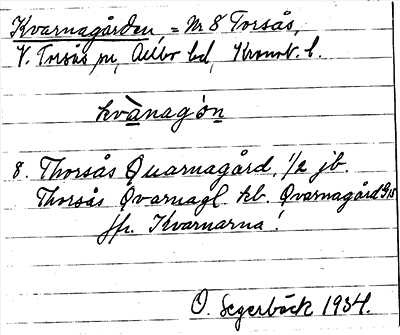 Kvarnagården, = Nr 8 Torsås,
V. Torsås sn, Allbo hd, Kronob. l.
kvànagȯn
8. Thorsås Quarnagård, 1/2 jb.
Thorsås Qvarnagl kb. Qvarnagård 9/15
jfr. Kvarnarna!
O. Segerbäck 1934.